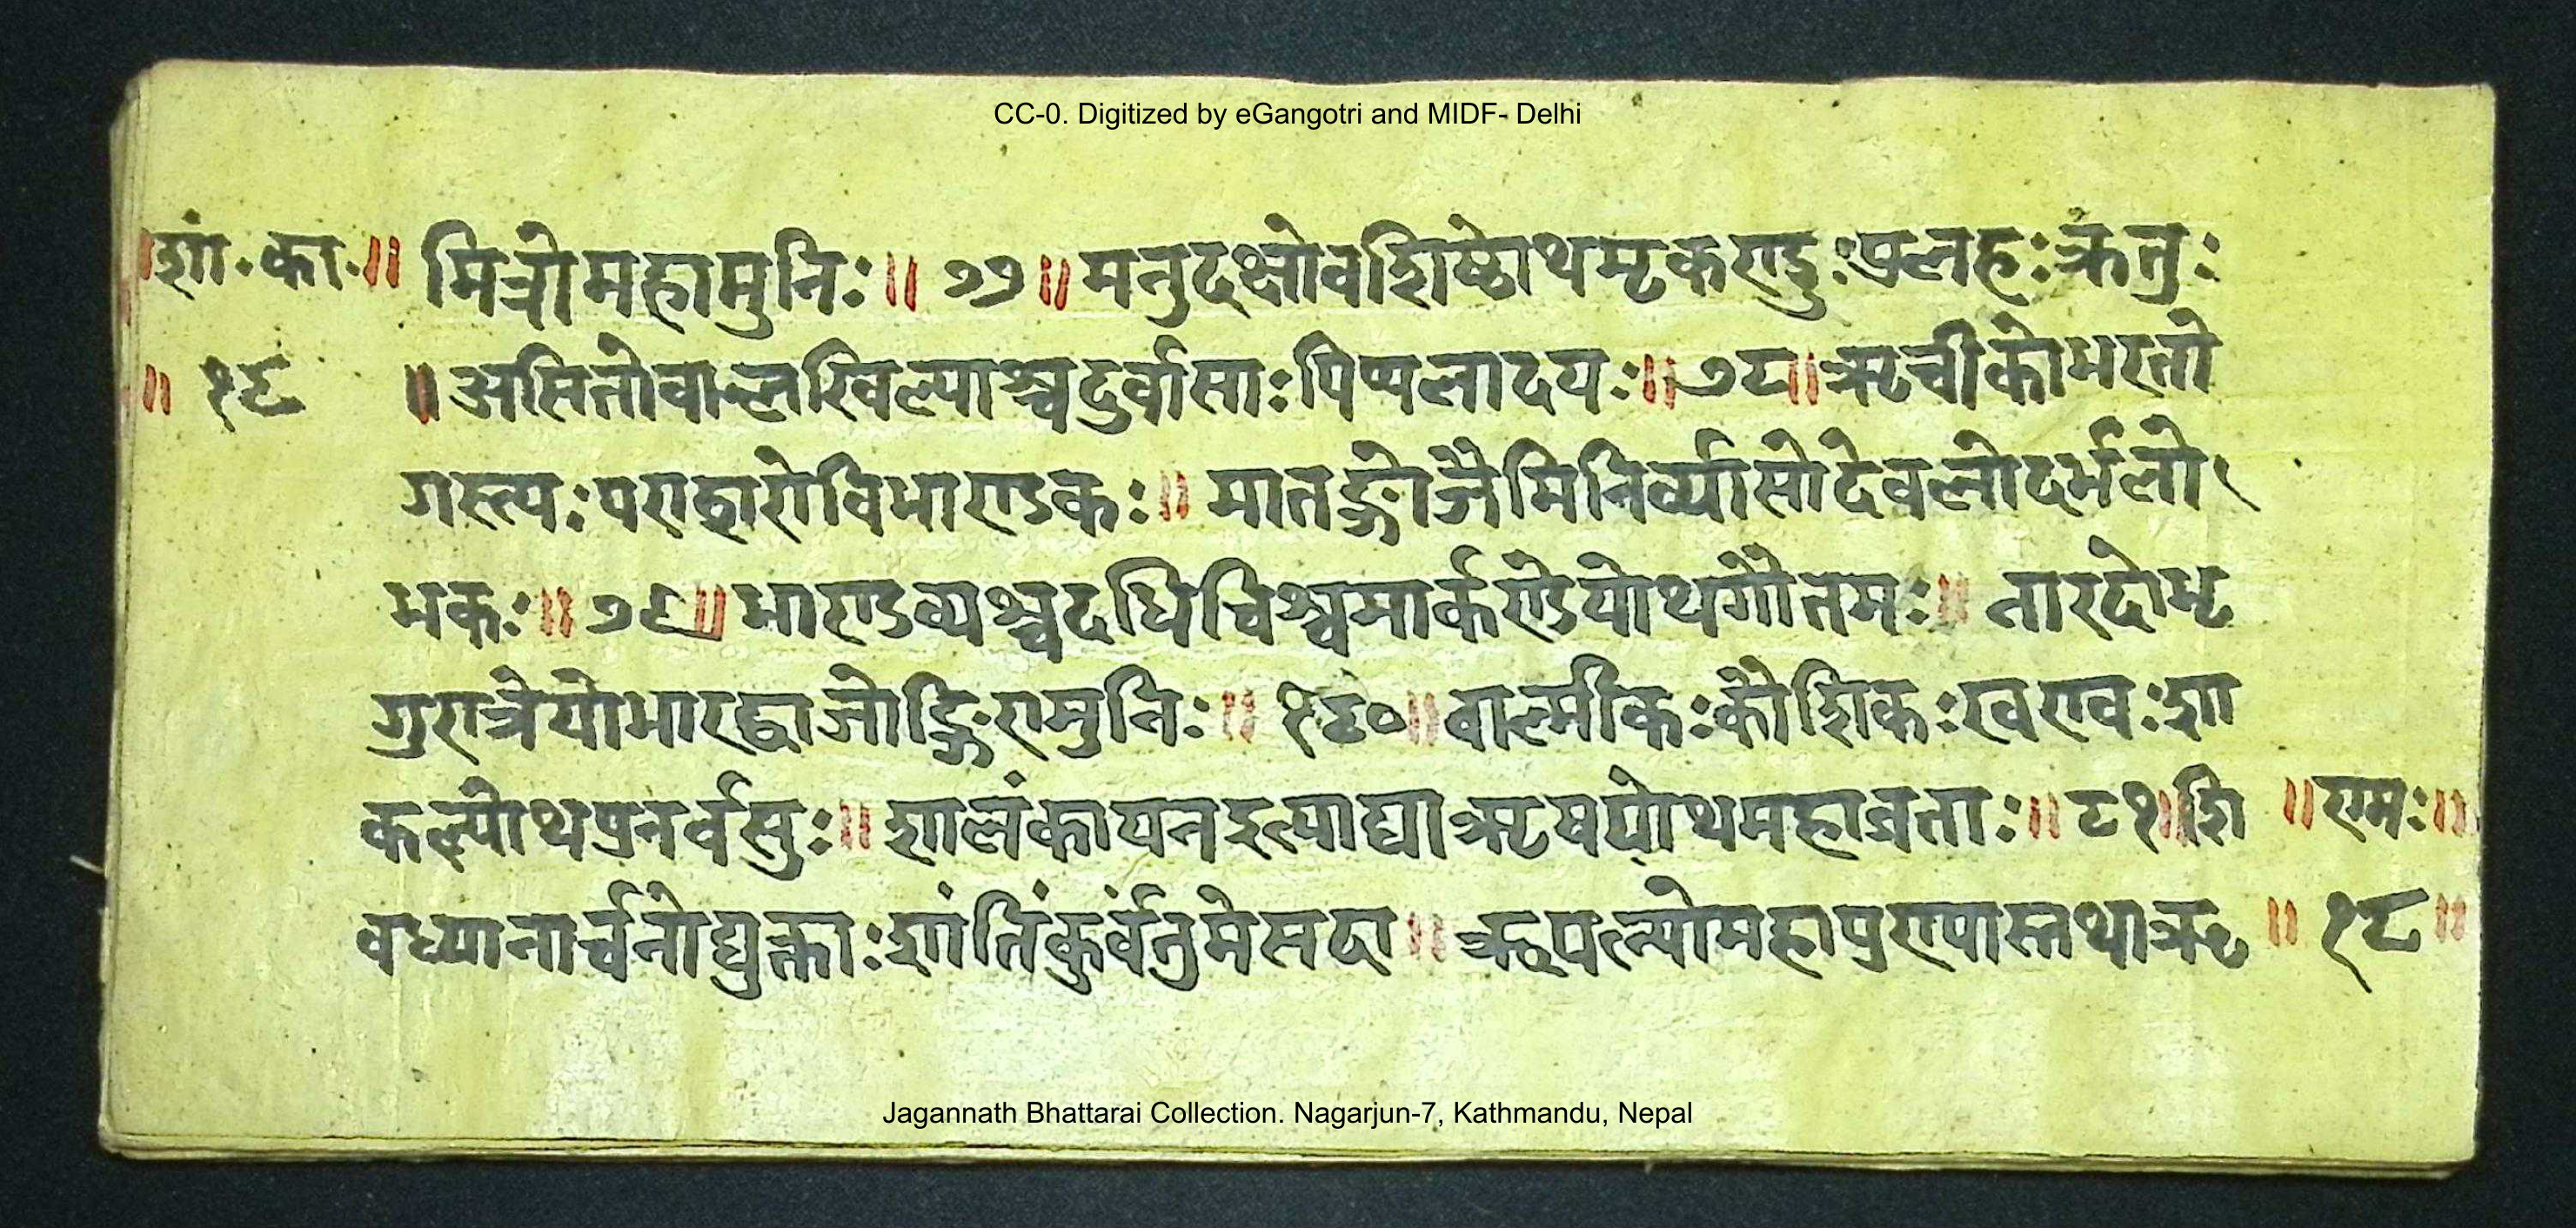 CC-0. Digitized by eGangotri and MIDF- Delhi
॥शां॰का॰॥ मित्रोमहामुनिः॥ ७७॥ मनुदक्षोवशिष्ठोथमृकण्डुःपुलहःक्रतुः
॥ १८ ॥असितोवाल्लखिल्याश्चदुर्वासाःपिप्पलादयः॥७८॥ऋचीकोभरतो
गस्त्यःपराशरोविभाण्डकः॥ मातङ्गोजैमिनिर्व्यासोदेवलोदर्भलो
भकः॥७९॥माण्डव्यश्चदधिचिश्चमार्कण्डेयोथगौतमः॥ नारदोभृ
गुरात्रेयोभारद्वाजोङ्गिरामुनिः॥ १८०॥वाल्मीकःकौशिकःखण्वःशा
कल्योथपुनर्वसुः॥ शालंकायनइत्याद्याऋषयोथमहाव्रताः॥ ८१॥शि ॥रामः॥
वध्यानार्चनोद्युक्ताःशांतिंकुर्वंतुमेसदा॥ ऋपत्न्योमहापुण्यास्तथाऋ ॥ १८॥
Jagannath Bhattarai Collection. Nagarjun-7, Kathmandu, Nepal